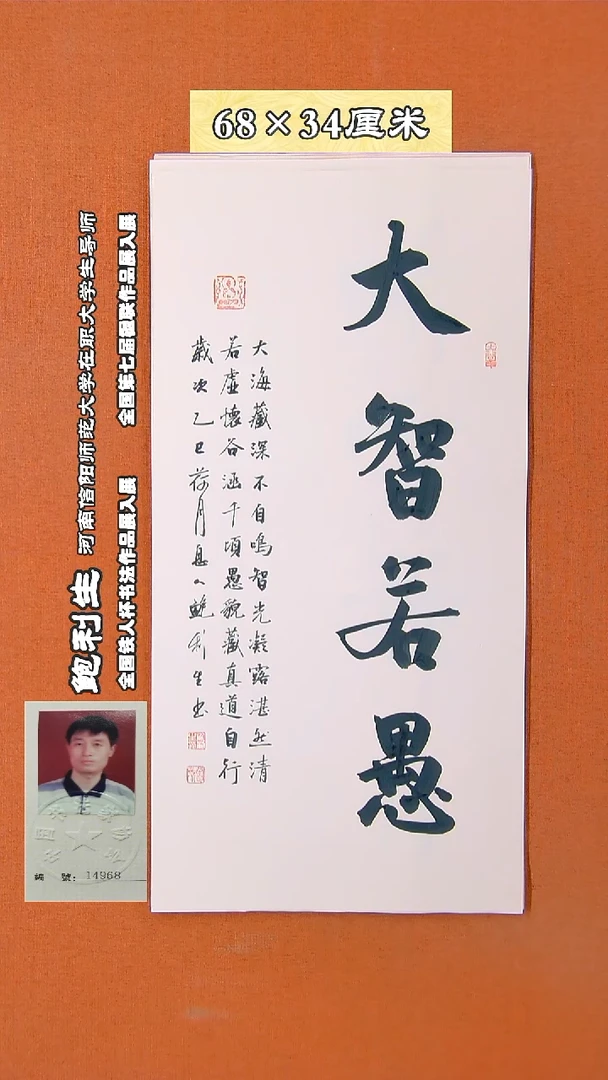 68×34厘米
大智若愚
大海藏深不自鳴智光凝露湛然清
若虛懷谷涵千頃愚貌藏真道自行
歲次乙巳荷月 鮑利生书
鲍利生
河南信阳师范大学在职大学生导师
全国铁人杯书法作品展入展
全国第七届楹联作品展入展
編 號: 14968